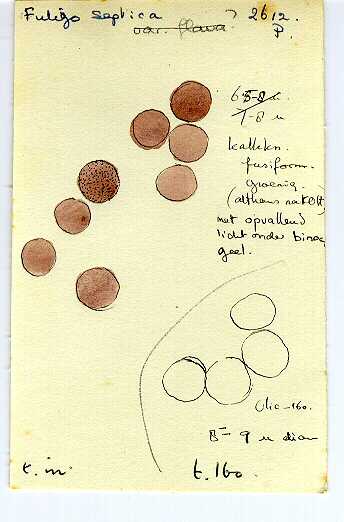 Fuligo septica 2612.
var. flava. P.
6 5-8 u.
7-8 u
kalkkn.
fusiform.
groenig.
(althans na KOH)
met opvallend
licht onder binoc
geel.
Olie-160.
8-9 u diam
t. im. t. 160.